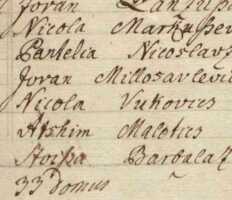 Jovan
Nicola
Pantelia Nicoslavs
Jovan Millosavlevi
Nicola Vukovics
Malotics
Stoissa Barbalaz
33 Domus